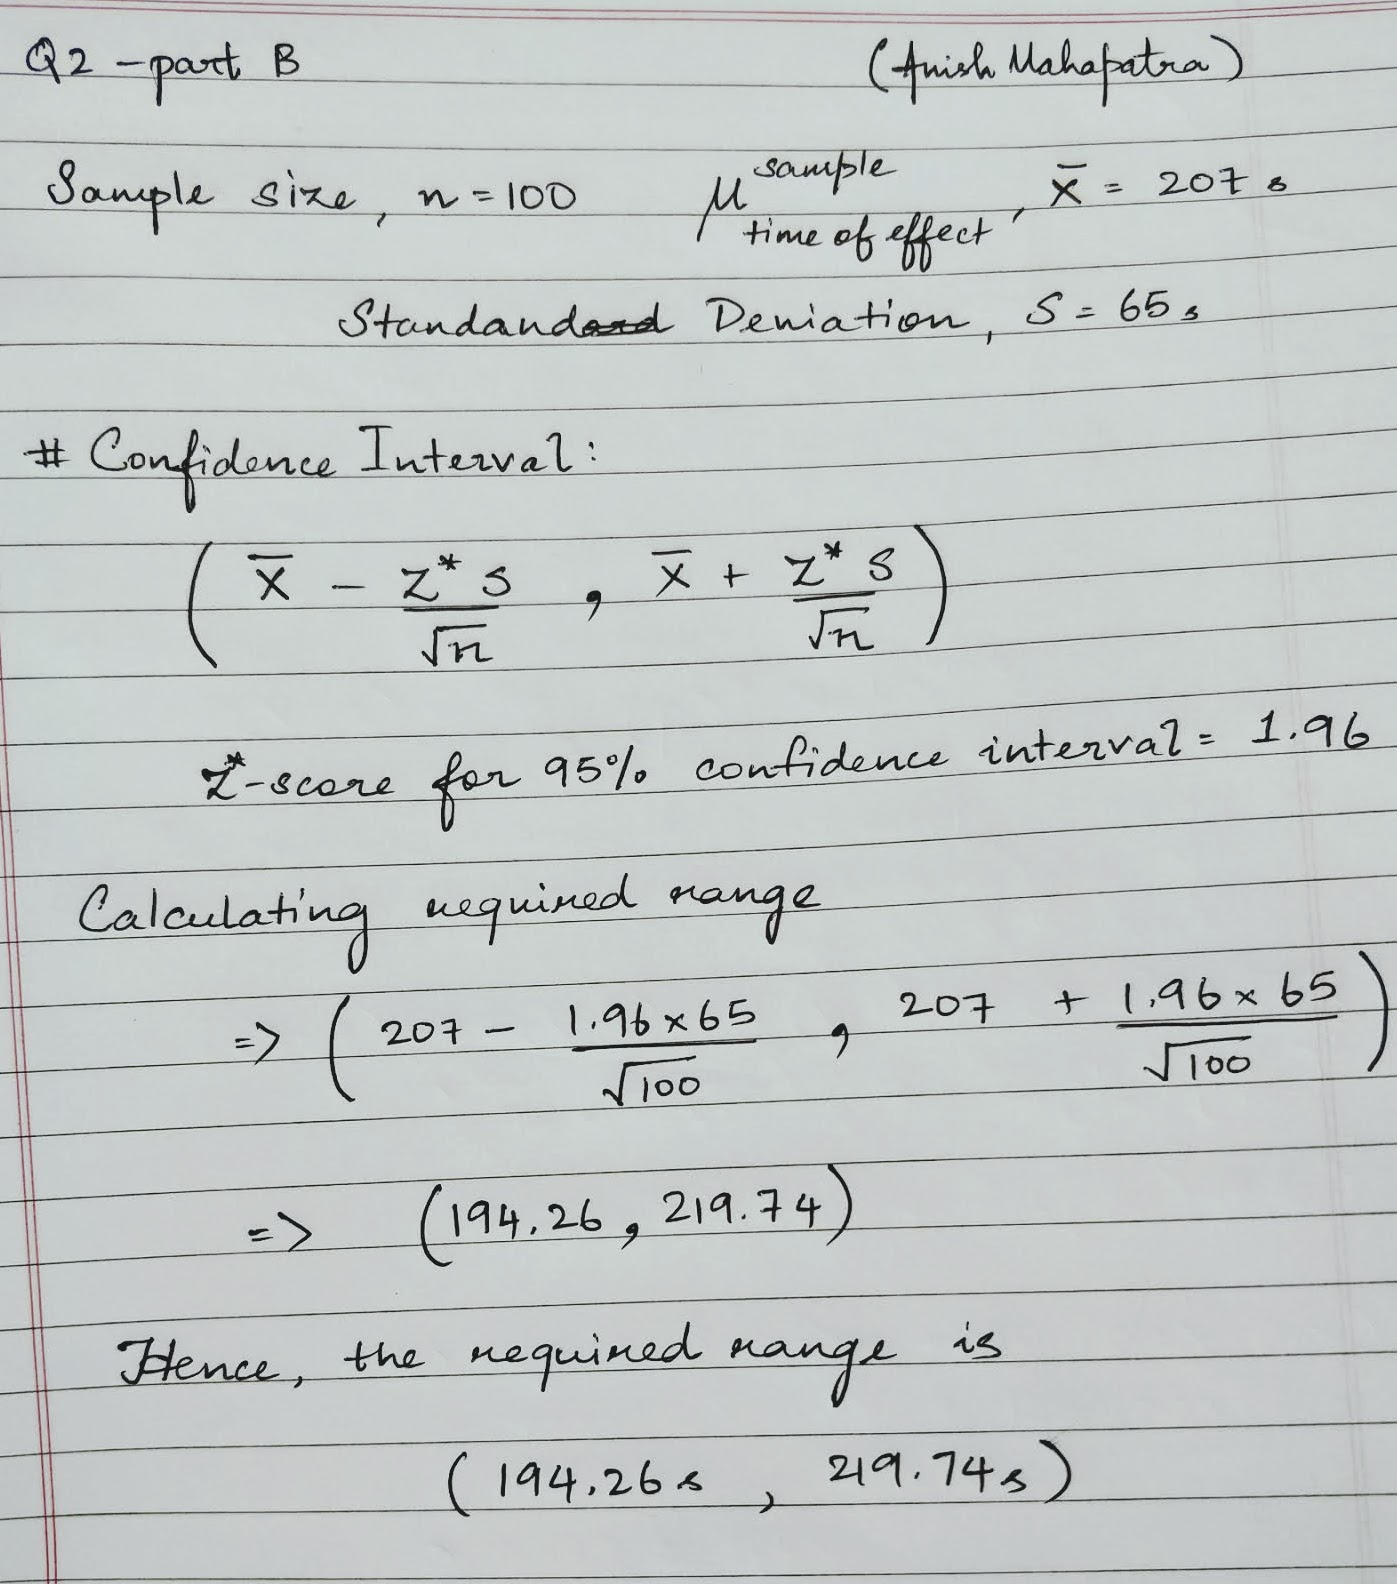 Q2 - part B (Anish Mahapatra)
Sample size, n = 100 μ sample time of effect, x̄ = 207 s
Standard Deviation, S = 65 s
# Confidence Interval:
( x̄ - Z* S / √n , x̄ + Z* S / √n )
Z*-score for 95% confidence interval = 1.96
Calculating required range
=> ( 207 - 1.96 x 65 / √100 , 207 + 1.96 x 65 / √100 )
=> (194.26, 219.74)
Hence, the required range is
( 194.26 s , 219.74 s )